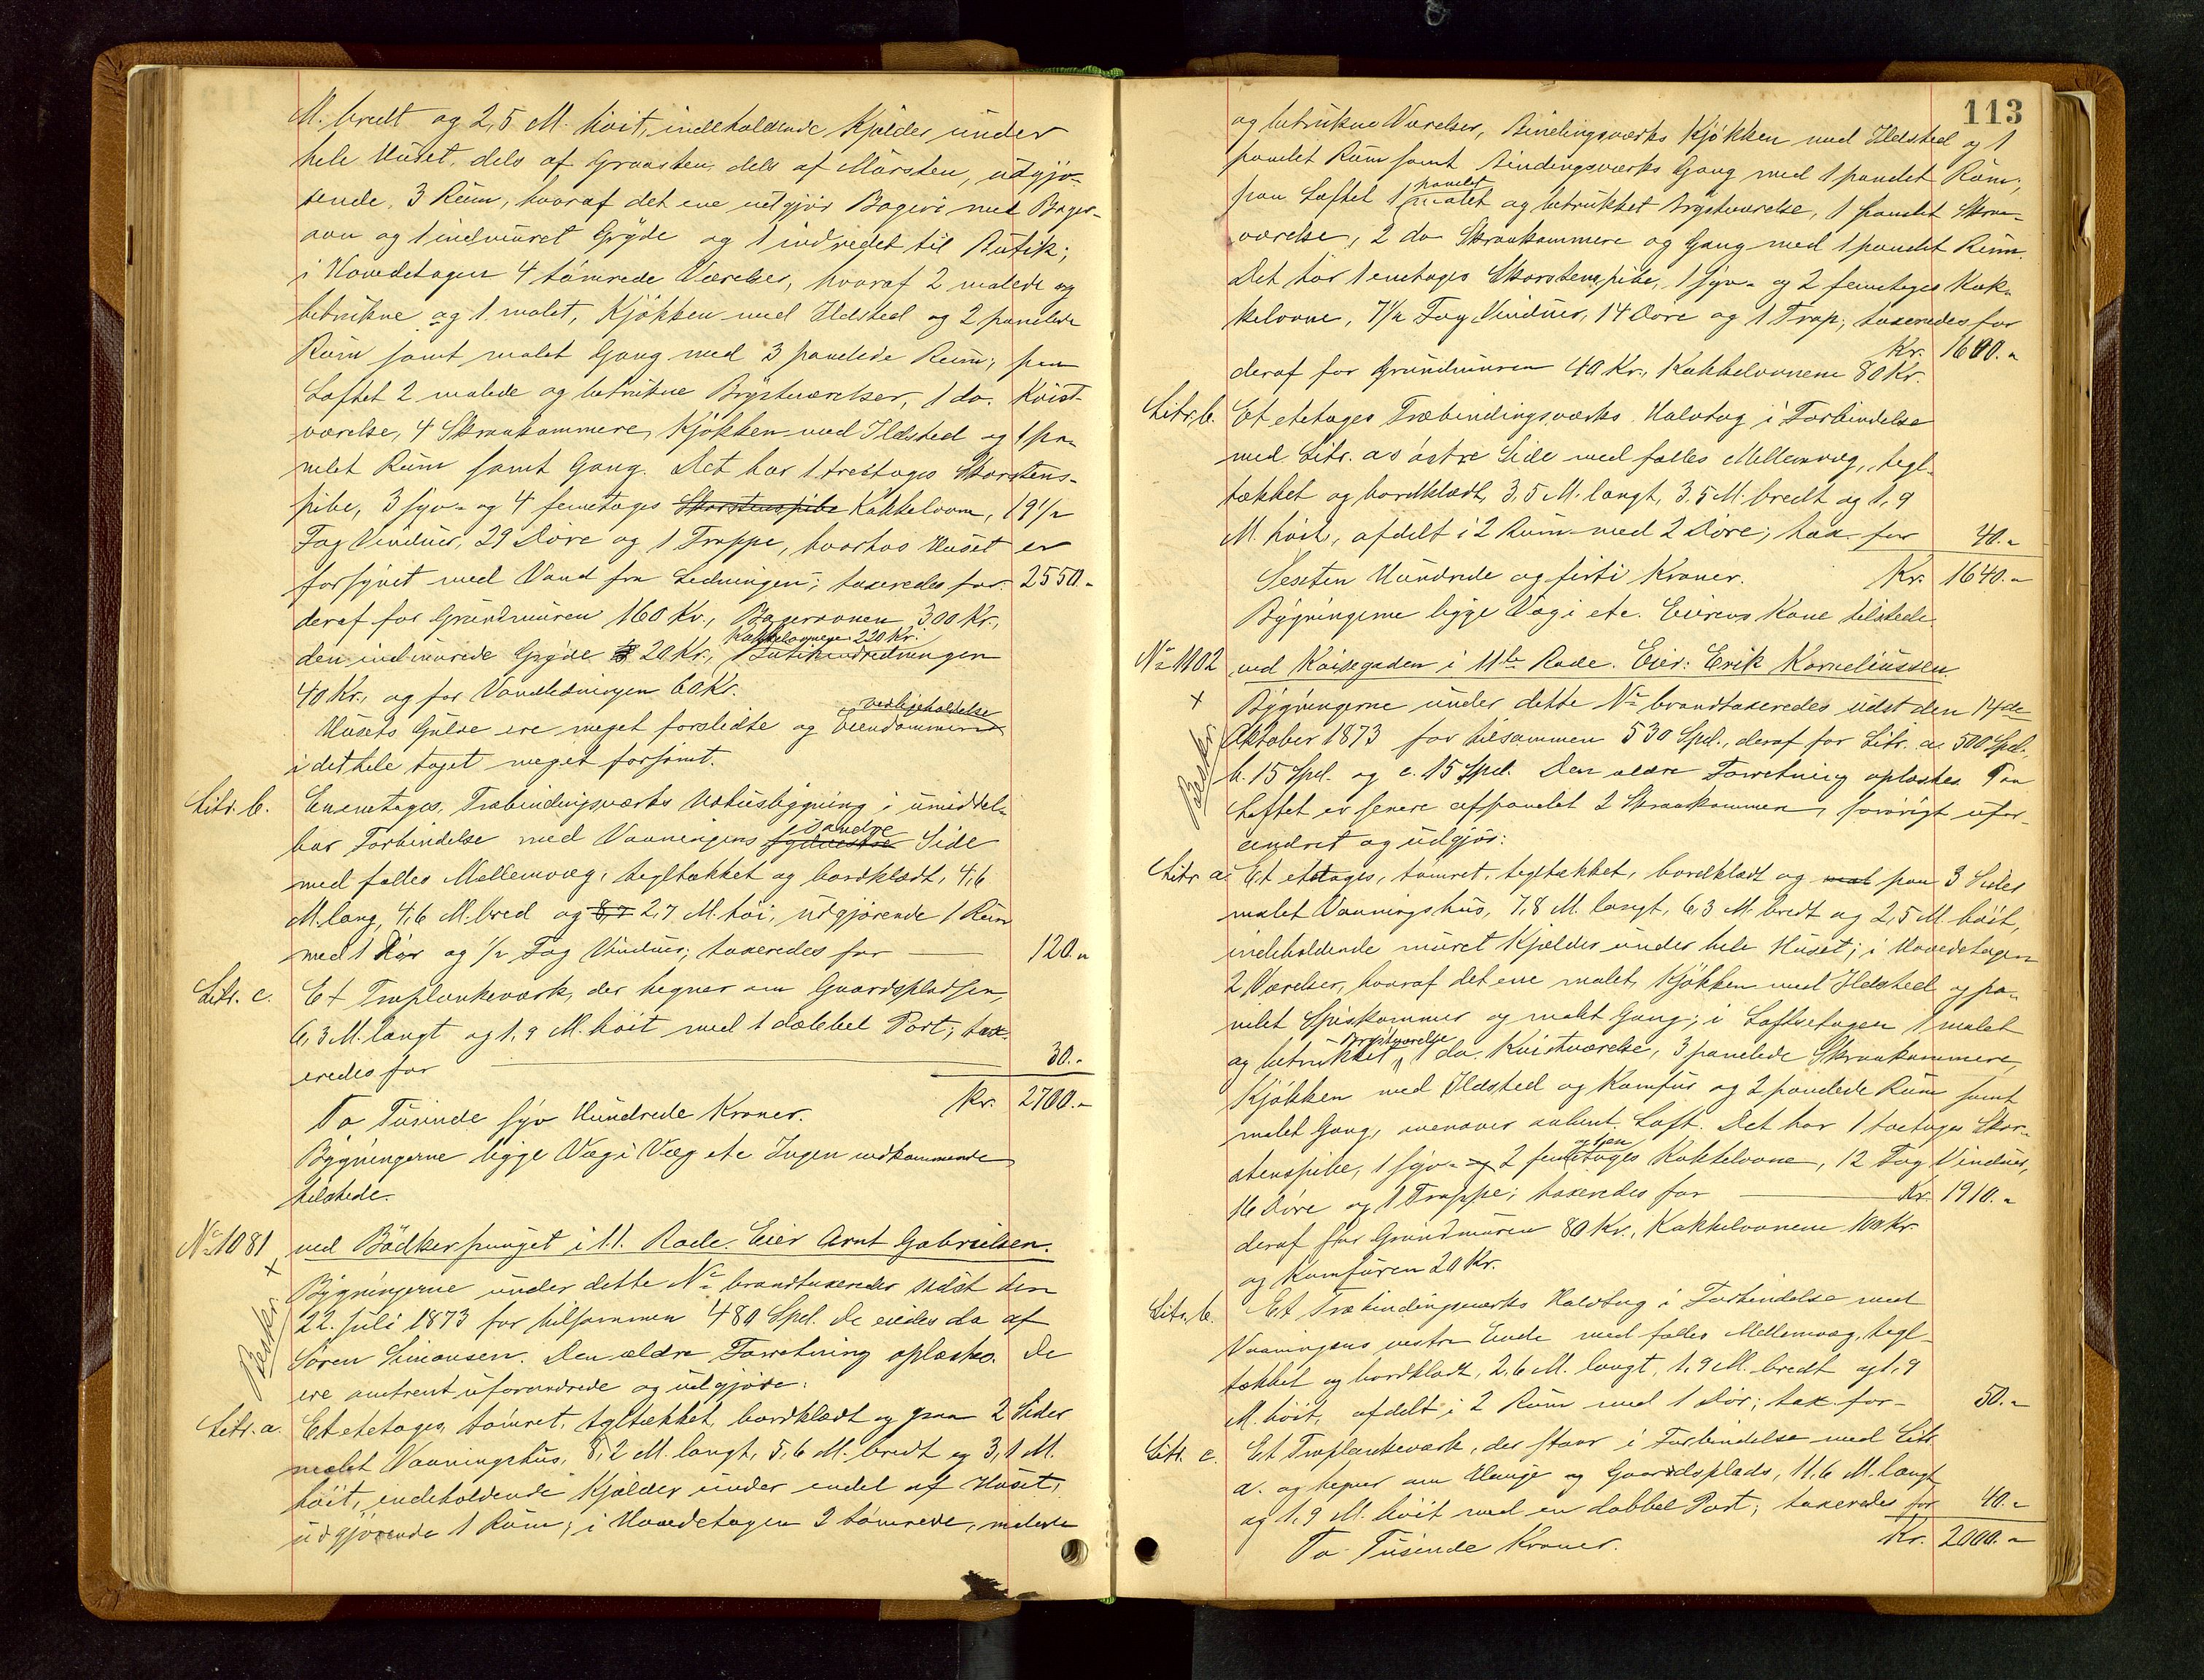 M. bredt og 2,5 M. høit, indeholdende Kjælder under
hele Huset, dels af Graasten, dels af Mursten, udgjø-
rende 3 Rum, hvoraf det ene udgjør Bageri med Bager-
ovn og 1 indmuret Gryde og 1 indredet til Butik;
i Hovedetagen 4 tømrede Værelser, hvoraf 2 malede og
betrukne og 1 malet, Kjøkken med Ildsted og 2 panelede
Rum samt malet Gang med 3 panelede Rum; paa
Loftet 2 malede og betrukne Brystværelser, 1 do. Kvist-
værelse, 4 Skraakammere, Kjøkken med Ildsted og 1 pa-
nelet Rum samt Gang. Det har 1 treetages Skorstens-
pibe, 3 syv- og 4 femetages Skorstenspibe Kakkelovne, 19 1/2
Fag Vinduer, 29 Døre og 1 Trappe, hvorhos Huset er
forsynet med Vand fra Ledningen; taxeredes for 2550.-
deraf for Grundmuren 160 Kr., Bagerovnen 300 Kr.,
Kakkelovnene 220 Kr.
den indmurede Gryde 20 Kr., Butikindredningen
40 Kr., og for Vandledningen 60 Kr.
vedligeholdelse
Husets Gulve ere meget forslidte og Eiendommens
i det hele taget meget forsømt.
Litr. b. En enetages Træbindingsværks Udhusbygning i umiddel-
bar Forbindelse med Vaaningens
søndre
sydvestre Side
med fælles Mellemvæg, tegltækket og bordklædt, 4,6
M. lang, 4,6 M. bred og 2,7 M. høi, udgjørende 1 Rum
med 1 Dør og 1/2 Fag Vinduer; taxeredes for 120.-
Litr. c. Et Træplankeværk, der hegner om Gaardspladsen,
6,3 M. langt og 1,9 M. høit med 1 dobbel Port; tax-
eredes for 30.-
Kr. 2700.-
To Tusinde syv Hundrede Kroner.
Bygningerne ligge Væg i Væg etc. Ingen vedkommende
tilstede.
No 1081 ved Bødkerpunget i 11. Rode. Eier Arnt Gabrielsen.
×
Beskr.
Bygningerne under dette No brandtaxeredes sidst den
22. Juli 1873 for tilsammen 480 Spd. De eiedes da af
Søren Simonsen. Den ældre Forretning oplæstes. De
ere omtrent uforandrede og udgjøre:
Litr. a. Et etetages, tømret, tegltækket, bordklædt og paa 2 Sider
malet Vaaningshus, 8,2 M. langt, 5,6 M. bredt og 3,1 M.
høit, indeholdende Kjælder under endel af Huset,
udgjørende 1 Rum; i Hovedetagen 2 tømrede, malede
113
og betrukne Værelser, Bindingsværks Kjøkken med Ildsted og 1
panelet Rum samt Bindingsværks Gang med 1 panelet Rum;
panelet
paa Loftet 1 malet og betrukket Brystværelse, 1 panelet Skraa-
værelse, 2 do Skraakammere og Gang med 1 panelet Rum.
Det har 1 enetages Skorstenspibe, 1 syv- og 2 femetages Kak-
kelovne, 7 1/2 Fag Vinduer, 14 Døre og 1 Trap; taxeredes for
Kr. 1600.-
deraf for Grundmuren 40 Kr., Kakkelovnene 80 Kr.
Litr. b. Et etetages Træbindingsværks Halvtag i Forbindelse
med Litr. a's østre Side med fælles Mellemvæg, tegl-
tækket og bordklædt, 3,5 M. langt, 3,5 M. bredt og 1,9
M. høit, afdelt i 2 Rum med 2 Døre; tax. for 40.-
Sexten Hundrede og firti Kroner. Kr. 1640.-
Bygningerne ligge Væg i etc. Eierens Kone tilstede.
No 1102 ved Kaisegaden i 11te Rode. Eier: Erik Korneliussen.
×
Beskr.
Bygningerne under dette No brandtaxeredes sidst den 14de
Oktober 1873 for tilsammen 530 Spd., deraf for Litr. a. 500 Spd.
b. 15 Spd. og c. 15 Spd. Den ældre Forretning oplæstes. Paa
Loftet er senere afpanelet 2 Skraakammere, forøvrigt ufor-
andret og udgjør:
Litr. a. Et etetages, tømret, tegltækket, bordklædt og mal paa 3 Sider
malet Vaaningshus, 7,8 M. langt, 6,3 M. bredt og 2,5 M. høit,
indeholdende muret Kjælder under hele Huset; i Hovedetagen
2 Værelser, hvoraf det ene malet, Kjøkken med Ildsted og pa-
nelet Spiskammer og malet Gang; i Loftsetagen 1 malet
Brystværelse
og betrukket, 1 do. Kvistværelse, 3 panelede Skraakammere,
Kjøkken med Ildsted og Komfur og 2 panelede Rum samt
malet Gang, ovenover aabent Loft. Det har 1 toetages Skor-
stenspibe, 1 syv- og 2 femetages Kakkelovne, 12 Fag Vinduer,
16 Døre og 1 Trappe; taxeredes for Kr. 1910.-
deraf for Grundmuren 80 Kr., Kakkelovnene 100 Kr.
og Komfuren 20 Kr.
Litr. b. Et Træbindingsværks Halvtag i Forbindelse med
Vaaningens vestre Ende med fælles Mellemvæg, tegl-
tækket og bordklædt, 2,6 M. langt, 1,9 M. bredt og 1,9
M. høit, afdelt i 2 Rum med 1 Dør; tax. for 50.-
Litr. c. Et Træplankeværk, der staar i Forbindelse med Litr.
a. og hegner om Hauge og Gaardsplads, 11,6 M. langt
og 1,9 M. høit med en dobbel Port; taxeredes for 40.-
To Tusinde Kroner. Kr. 2000.-